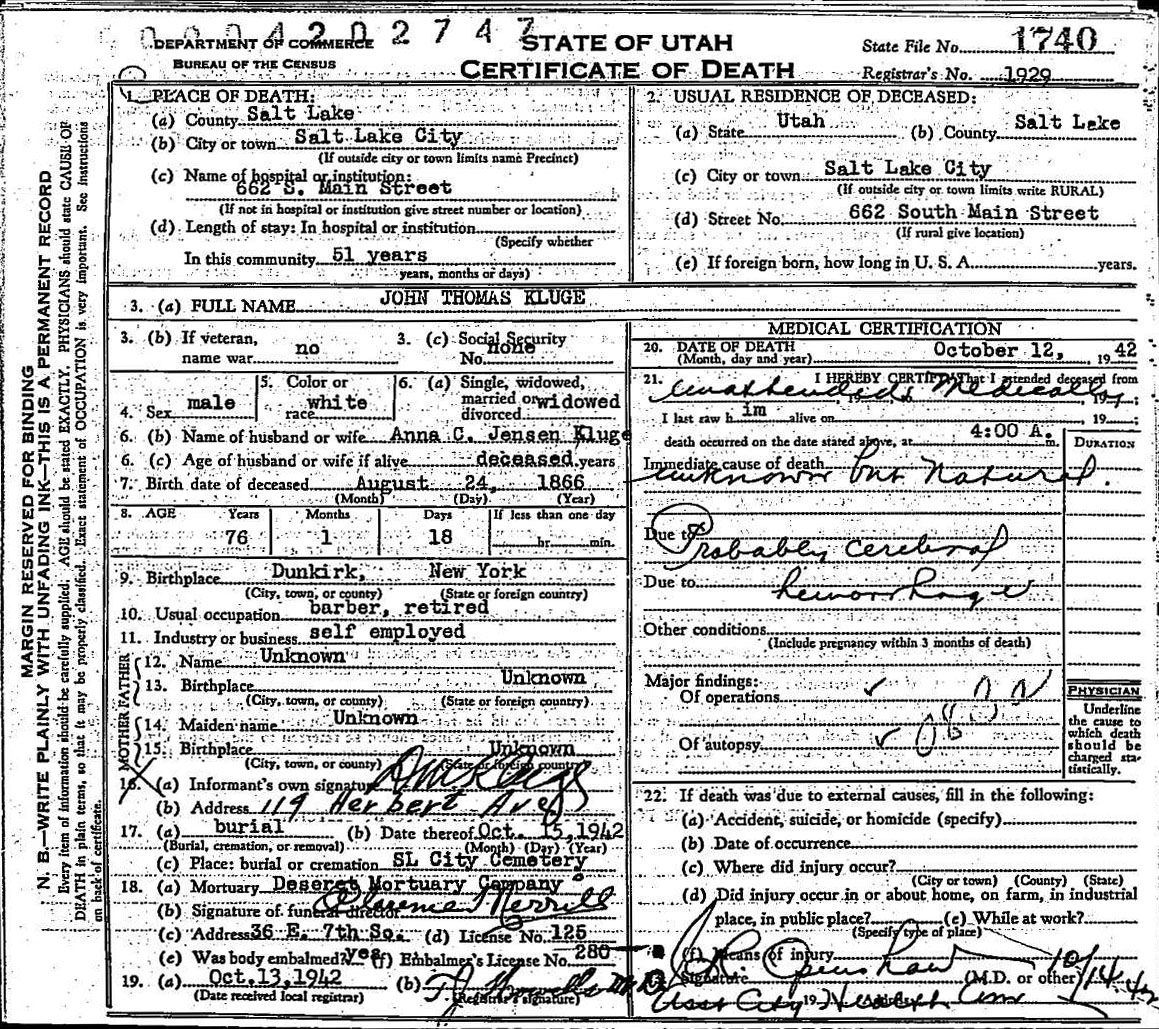 0004202747
DEPARTMENT OF COMMERCE
BUREAU OF THE CENSUS
STATE OF UTAH
CERTIFICATE OF DEATH
State File No. 1740
Registrar's No. 1929
MARGIN RESERVED FOR BINDING
N. B.—WRITE PLAINLY WITH UNFADING INK—THIS IS A PERMANENT RECORD
Every item of information should be carefully supplied. AGE should be stated EXACTLY. PHYSICIANS should state CAUSE OF
DEATH in plain terms, so that it may be properly classified. Exact statement of OCCUPATION is very important. See instructions
on back of certificate.
1. PLACE OF DEATH:
(a) County Salt Lake
(b) City or town Salt Lake City
(If outside city or town limits name Precinct)
(c) Name of hospital or institution:
662 S. Main Street
(If not in hospital or institution give street number or location)
(d) Length of stay: In hospital or institution
(Specify whether
In this community 51 years
years, months or days)
2. USUAL RESIDENCE OF DECEASED:
(a) State Utah (b) County Salt Lake
(c) City or town Salt Lake City
(If outside city or town limits write RURAL)
(d) Street No. 662 South Main Street
(If rural give location)
(e) If foreign born, how long in U. S. A. years.
3. (a) FULL NAME JOHN THOMAS KLUGE
3. (b) If veteran, name war no
3. (c) Social Security No. none
4. Sex male
5. Color or race white
6. (a) Single, widowed, married or divorced widowed
6. (b) Name of husband or wife Anna C. Jensen Kluge
6. (c) Age of husband or wife if alive deceased years
7. Birth date of deceased August 24, 1866
(Month) (Day) (Year)
8. AGE Years Months Days If less than one day
76 1 18 hr. min.
9. Birthplace Dunkirk, New York
(City, town, or county) (State or foreign country)
10. Usual occupation barber, retired
11. Industry or business self employed
FATHER
12. Name Unknown
13. Birthplace Unknown
(City, town, or county) (State or foreign country)
MOTHER
14. Maiden name Unknown
15. Birthplace Unknown
(City, town, or county) (State or foreign country)
16. (a) Informant's own signature Kluge
(b) Address 119 Herbert Ave
17. (a) burial (b) Date thereof Oct. 15, 1942
(Burial, cremation, or removal) (Month) (Day) (Year)
(c) Place: burial or cremation SL City Cemetery
18. (a) Mortuary Deseret Mortuary Company
(b) Signature of funeral director Clarence Merrill
(c) Address 36 E. 7th So. (d) License No. 125
(e) Was body embalmed? yes (f) Embalmer's License No. 280
19. (a) Oct. 13, 1942 (b) T. J. Howells M.D.
(Date received local registrar) (Registrar's signature)
MEDICAL CERTIFICATION
20. DATE OF DEATH October 12, 1942
(Month, day and year)
21. I HEREBY CERTIFY That I attended deceased from
unattended Medically 19
I last saw him alive on 19
death occurred on the date stated above, at 4:00 A. m.
DURATION
Immediate cause of death
unknown but Natural.
Due to Probably cerebral
Due to hemorrhage
Other conditions
(Include pregnancy within 3 months of death)
Major findings:
Of operations
Of autopsy
PHYSICIAN
Underline
the cause to
which death
should be
charged sta-
tistically.
22. If death was due to external causes, fill in the following:
(a) Accident, suicide, or homicide (specify)
(b) Date of occurrence
(c) Where did injury occur?
(City or town) (County) (State)
(d) Did injury occur in or about home, on farm, in industrial
place, in public place? (e) While at work?
(Specify type of place)
(f) Means of injury
Signature Openshaw (M.D. or other) 10/14-42
Asst City Health Com